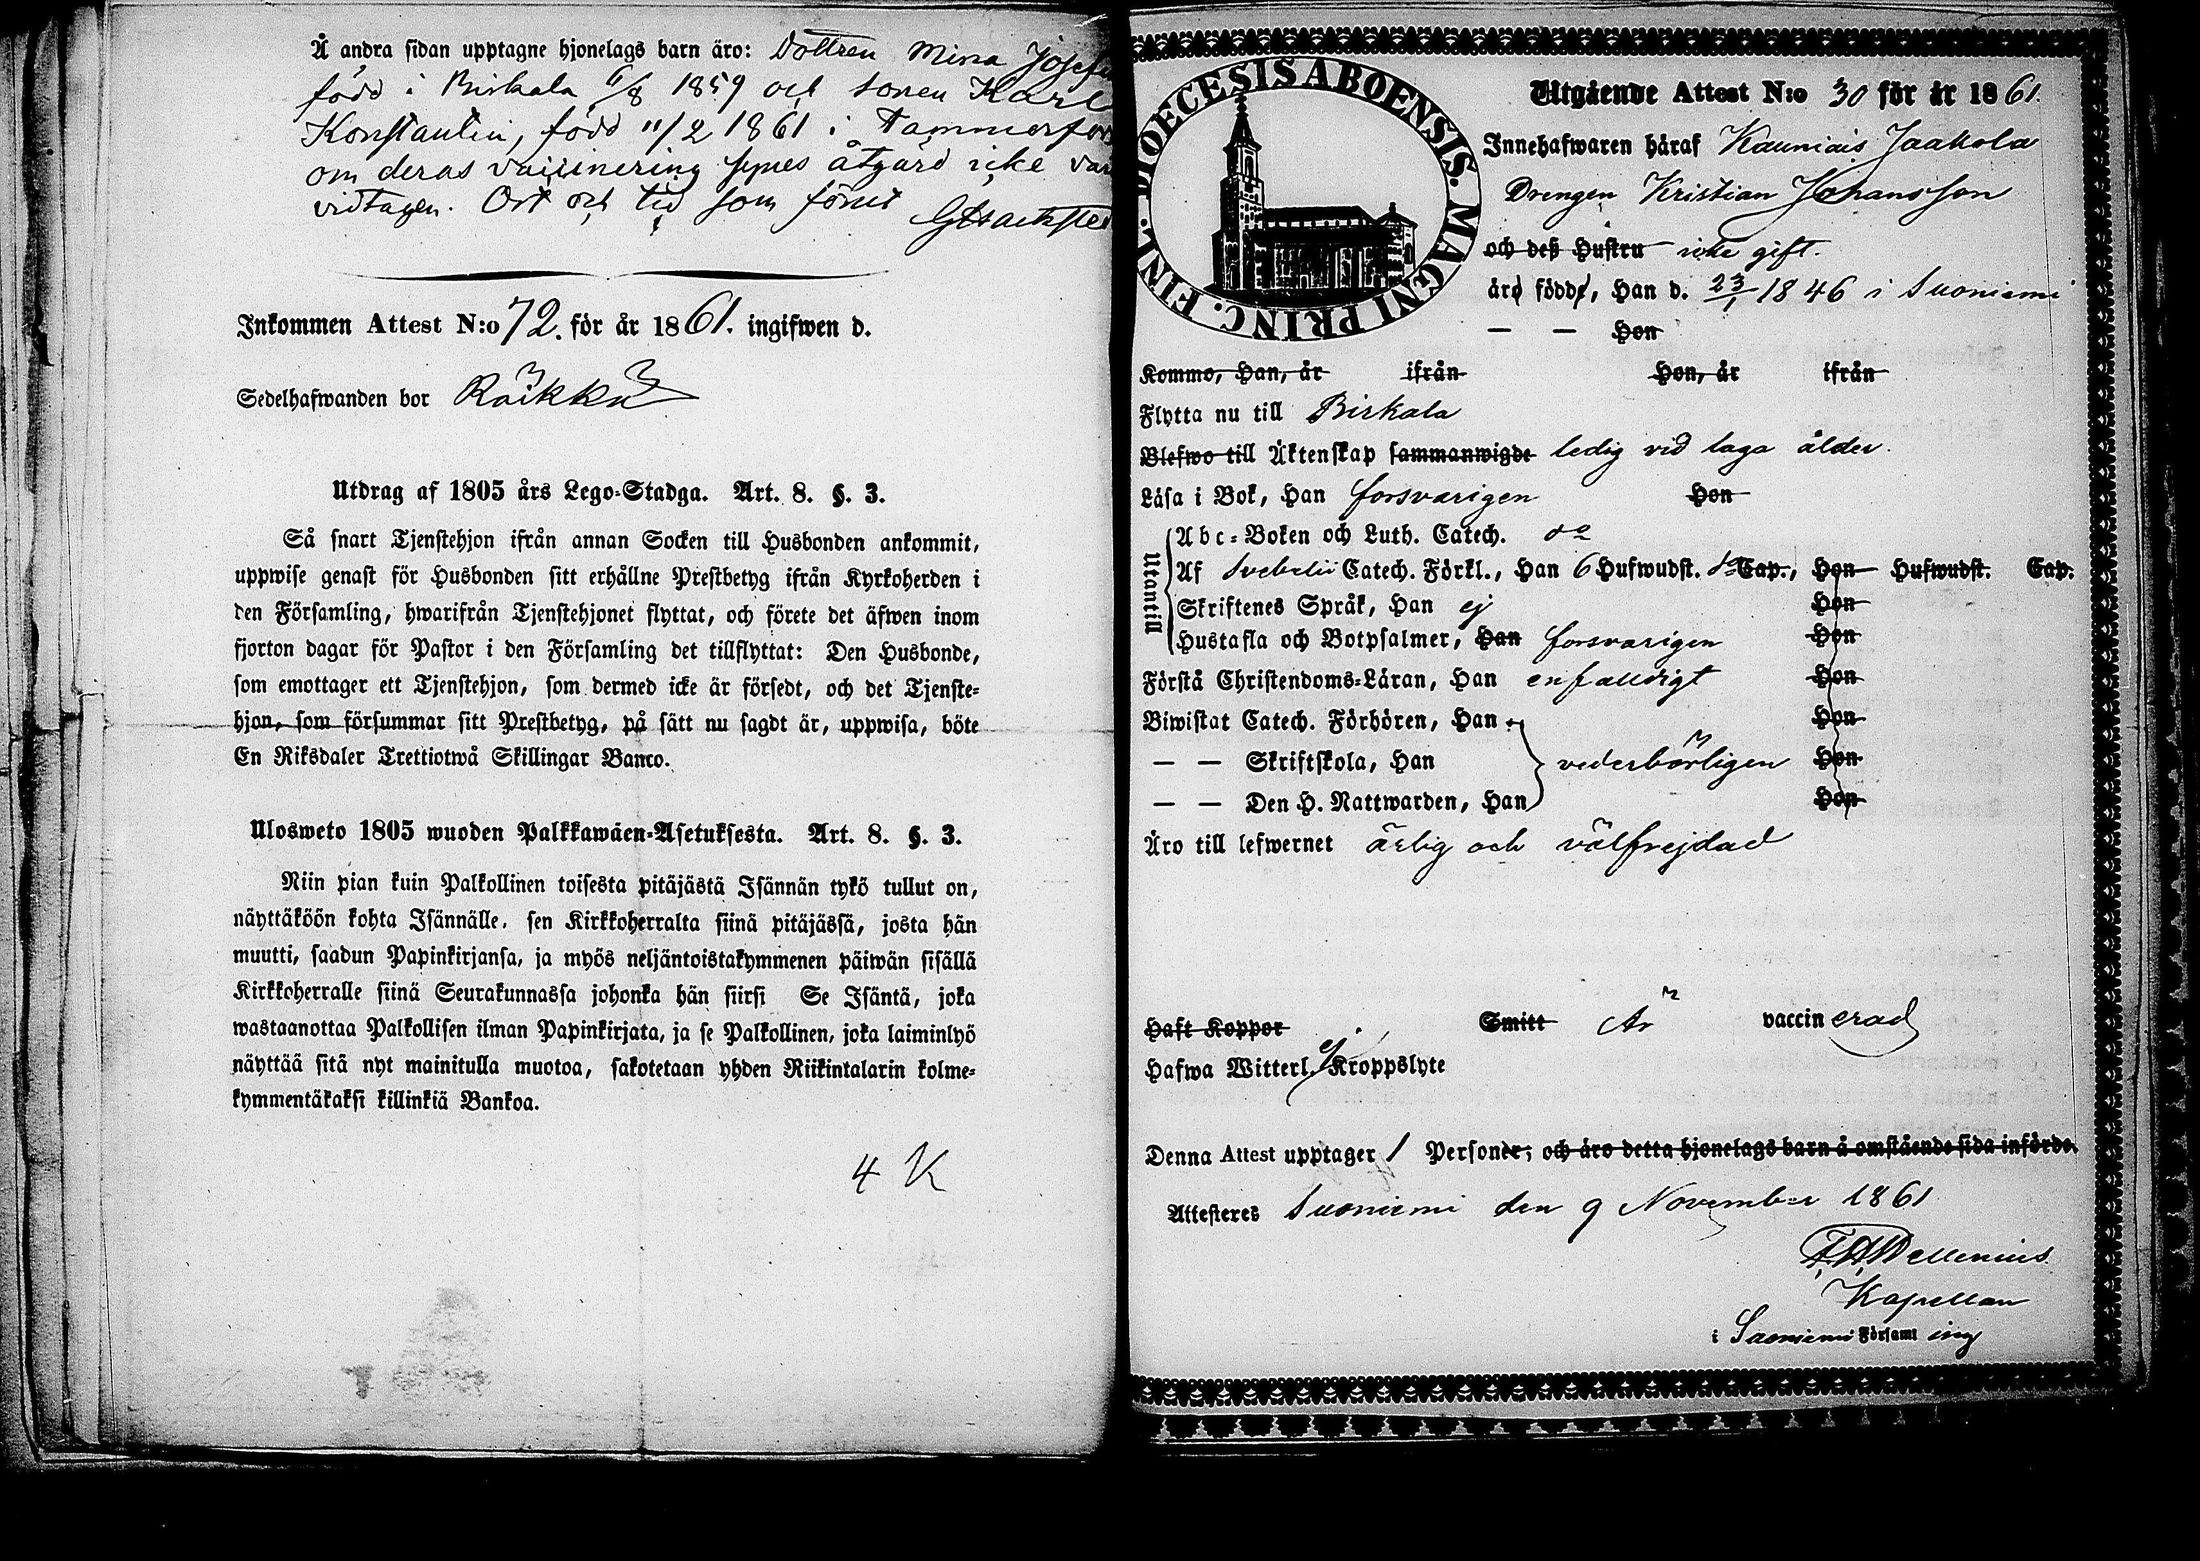 Å andra sidan upptagne hjonelags barn äro: Dottren Mina Josefi
född i Birkala 6/8 1859 och sonen Karl
Konstantin, född 11/2 1861 i Tammerfors
om deras vaccinering synes åtgärd icke var
vidtagen. Ort och tid som förut
Inkommen Attest N:o 72. för år 1861. ingifwen d.
Sedelhafwanden bor Räikkä
Utdrag af 1805 års Lego-Stadga. Art. 8. §. 3.
Så snart Tjenstehjon ifrån annan Socken till Husbonden ankommit,
uppwise genast för Husbonden sitt erhållne Prestbetyg ifrån Kyrkoherden i
den Församling, hwarifrån Tjenstehjonet flyttat, och förete det äfwen inom
fjorton dagar för Pastor i den Församling det tillflyttat: Den Husbonde,
som emottager ett Tjenstehjon, som dermed icke är försedt, och det Tjenste-
hjon, som försummar sitt Prestbetyg, på sätt nu sagdt är, uppwisa, böte
En Riksdaler Trettiotwå Skillingar Banco.
Ulosweto 1805 wuoden Palkkawäen-Asetuksesta. Art. 8. §. 3.
Niin pian kuin Palkollinen toisesta pitäjästä Isännän tykö tullut on,
näyttäköön kohta Isännälle, sen Kirkkoherralta siinä pitäjässä, josta hän
muutti, saadun Papinkirjansa, ja myös neljäntoistakymmenen päiwän sisällä
Kirkkoherralle siinä Seurakunnassa johonka hän siirsi Se Isäntä, joka
wastaanottaa Palkollisen ilman Papinkirjata, ja se Palkollinen, joka laiminlyö
näyttää sitä nyt mainitulla muotoa, sakotetaan yhden Riikintalarin kolme-
kymmentäkaksi killinkiä Bankoa.
4 K
DIOECESIS ABOENSIS. MAGNI PRINC. FINL.
Utgående Attest N:o 30 för år 1861.
Innehafwaren häraf Kauniais Jaakola
Drengen Kristian Johansson
och deß Hustru icke gift.
äro födde, Han d. 23/1 1846 i Suoniemi
— — Hon
Kommo, Han, år ifrån Hon, år ifrån
Flytta nu till Birkala
Blefwo till Äktenskap sammanwigde ledig vid laga ålder.
Läsa i Bok, Han forsvarigen Hon
Utantill
Abc-Boken och Luth. Catech. do
Af Svebelii Catech. Förkl., Han 6 Hufwudst. do Cap., Hon Hufwudst. Cap.
Skriftenes Språk, Han ej Hon
Hustafla och Botpsalmer, Han forsvarigen Hon
Förstå Christendoms-Läran, Han enfaldigt Hon
Biwistat Catech. Förhören, Han Hon
— — Skriftskola, Han vederbörligen Hon
— — Den H. Nattwarden, Han Hon
Äro till lefwernet ärlig och välfrejdad
Haft Koppor Smitt Är vaccinerad
Hafwa Witterl. ej Kroppslyte
Denna Attest upptager 1 Personer; och äro detta hjonelags barn å omstående sida införde.
Attesteres Suoniemi den 9 November 1861
Kapellan
i Suoniemi Församling